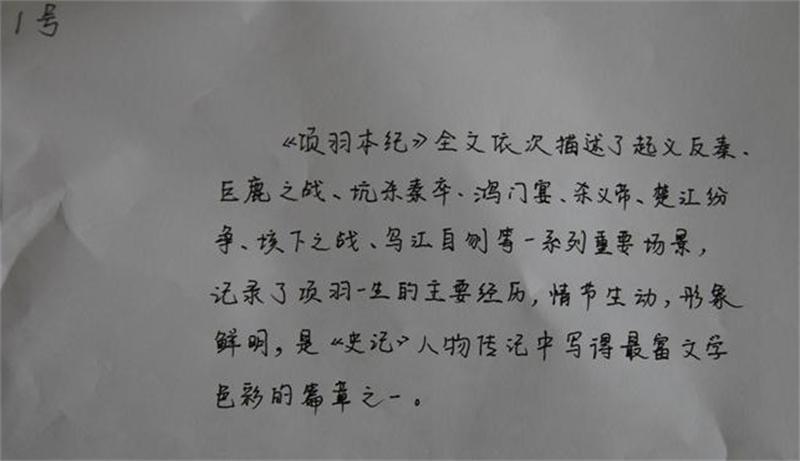 1号
《项羽本纪》全文依次描述了起义反秦、
巨鹿之战、坑杀秦卒、鸿门宴、杀义帝、楚江纷
争、垓下之战、乌江自刎等一系列重要场景，
记录了项羽一生的主要经历，情节生动，形象
鲜明，是《史记》人物传记中写得最富文学
色彩的篇章之一。